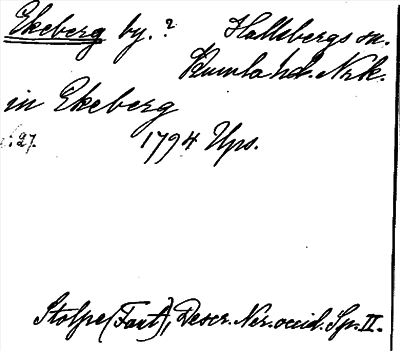 Ekeberg by. ? Hallsbergs sn.
Kumla hd. Nrk.
in Ekeberg
s. 27. 1794 Ups.
Stolpe (Fant), Descr. Ner. occid. Sp. II.